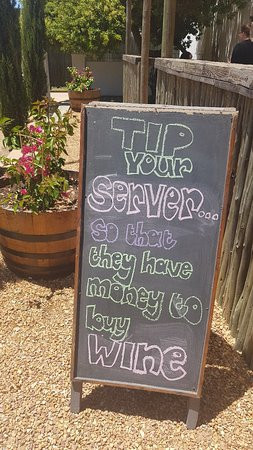 TIP
your
Server...
so that
they have
money to
buy
WINE